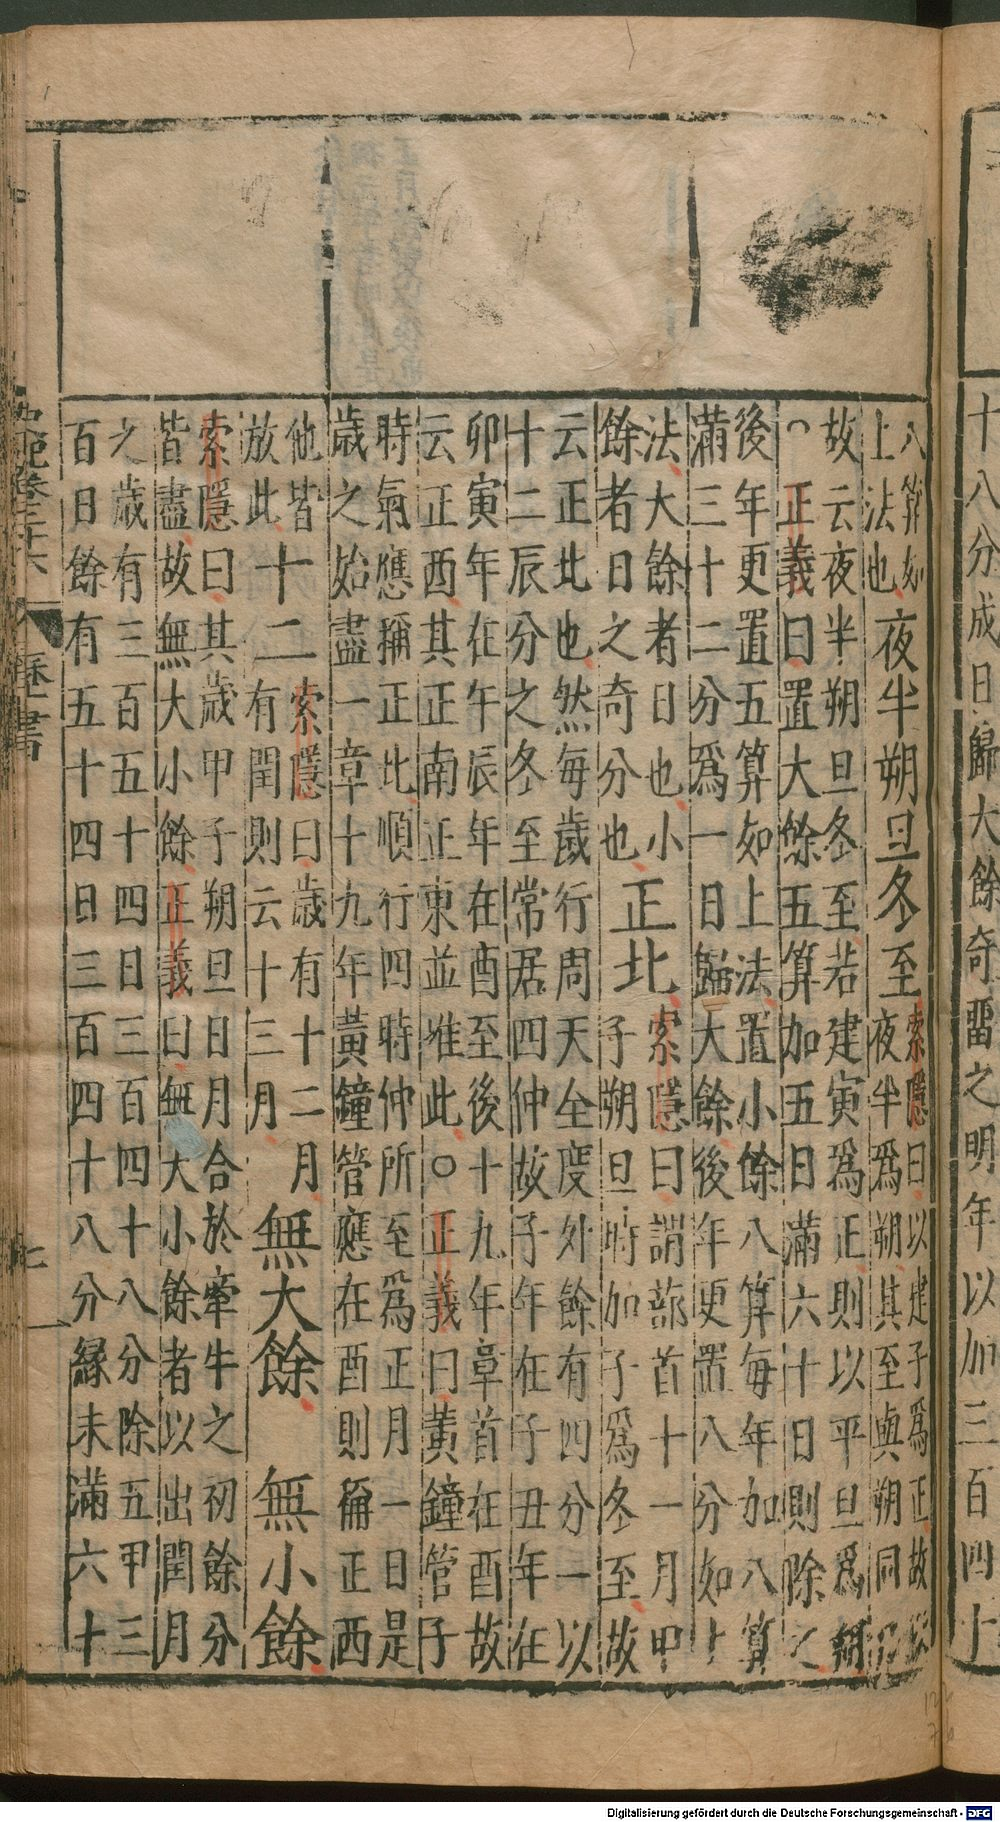 十八分成日歸大餘奇畱之明年以加三百四十
八算如
上法也
夜半朔旦冬至
索隱曰以建子爲正故以
夜半爲朔其至與朔同
故云夜半朔旦冬至若建寅爲正則以平旦爲朔
〇正義曰置大餘五算加五日滿六十日則除之
後年更置五算如上法置小餘八算每年加八算
滿三十二分爲一日歸大餘後年更置八分如上
法大餘者日也小
餘者日之奇分也
正北
索隱曰謂蔀首十一月甲
子朔旦時加子爲冬至故
云正北也然每歲行周天全度外餘有四分一以
十二辰分之冬至常居四仲故子年在子丑年在
卯寅年在午辰年在酉至後十九年章首在酉故
云正西其正南正東並准此〇正義曰黃鐘管子
時氣應稱正北順行四時仲所至爲正月一日是
歲之始盡一章十九年黃鐘管應在酉則稱正西
他皆
放此
十二
索隱曰歲有十二月
有閏則云十三月
無大餘　無小餘
索隱曰其歲甲子朔旦日月合於牽牛之初餘分
皆盡故無大小餘正義曰無大小餘者以出閏月
之歲有三百五十四日三百四十八分除五甲三
百日餘有五十四日三百四十八分緣未滿六十
曆書
七
Digitalisierung gefördert durch die Deutsche Forschungsgemeinschaft - DFG